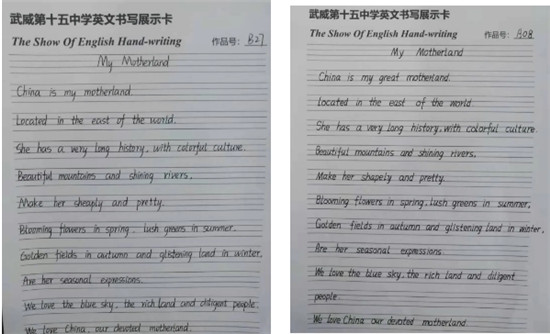 武威第十五中学英文书写展示卡
The Show Of English Hand-writing 作品号: B27
My Motherland
China is my motherland.
Located in the east of the world.
She has a very long history, with colorful culture.
Beautiful mountains and shining rivers,
Make her sheaply and pretty.
Blooming flowers in spring, lush greens in summer,
Golden fields in autumn and glistening land in winter,
Are her seasonal expressions.
We love the blue sky, the rich land and diligent people.
We love China, our devoted motherland.
武威第十五中学英文书写展示卡
The Show Of English Hand-writing 作品号: B08
My Motherland
China is my great motherland.
Located in the east of the world.
She has a very long history, with colorful culture.
Beautiful mountains and shining rivers,
Make her shapely and pretty.
Blooming flowers in spring, lush greens in summer,
Golden fields in autumn and glistening land in winter,
Are her seasonal expressions.
We love the blue sky, the rich land and diligent
people.
We love China our devoted motherland